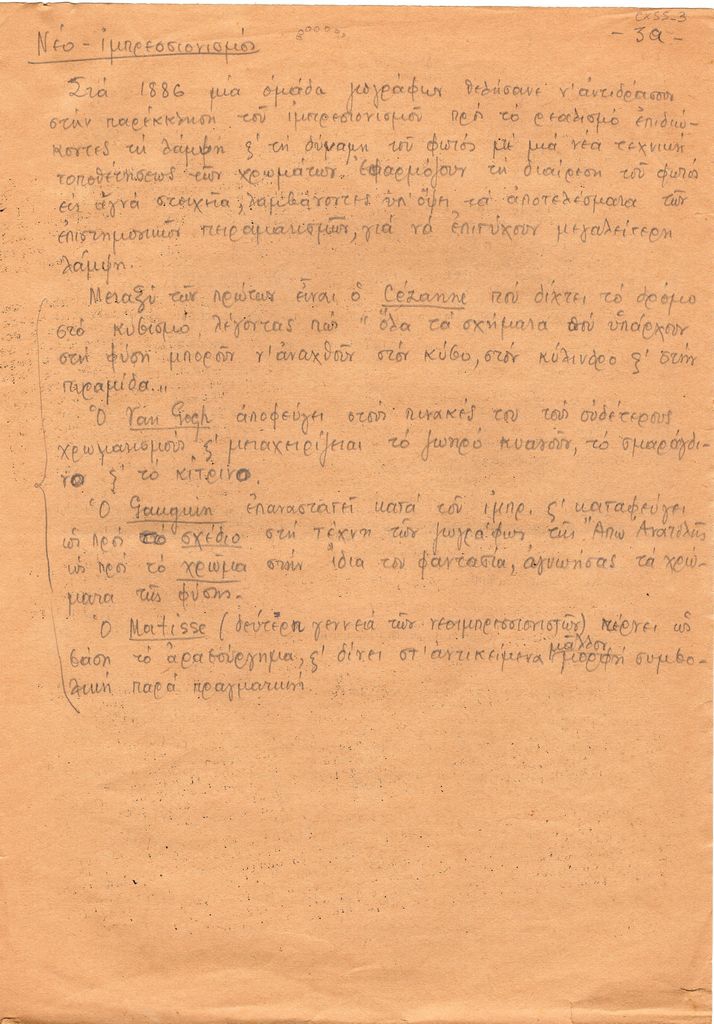 CXSS_3
- 3α -
Νέο - ἰμπρεσσιονισμός
Στά 1886 μία ὁμάδα ζωγράφων θελήσανε ν'ἀντιδράσουν
στήν παρέκκλιση τοῦ ἰμπρεσιονισμοῦ πρός τό ρεαλισμό ἐπιδιώ-
κοντες τή λάμψη ξ' τή δύναμη τοῦ φωτός μέ μιά νέα τεχνική
τοποθετήσεως τῶν χρωμάτων. Ἐφαρμόζουν τή διαίρεση τοῦ φωτός
εἰς ἁγνά στοιχεῖα, λαμβάνοντες ὑπ'ὄψει τά ἀποτελέσματα τῶν
ἐπιστημονικῶν πειραματισμῶν, γιά νά ἐπιτύχουν μεγαλείτερη
λάμψη.
Μεταξύ τῶν πρώτων εἶναι ὁ Cézanne πού δίχτει τό δρόμο
στό κυβισμό, λέγοντας πώς "ὅλα τά σχήματα πού ὑπάρχουν
στή φύση μποροῦν ν'ἀναχθοῦν στόν κύβο, στόν κύλινδρο ξ' στήν
πυραμίδα..."
Ὁ Van Gogh ἀποφεύγει στούς πινακές του τούς οὐδέτερους
χρωματισμούς ξ' μεταχειρίζεται τό ζωηρό κυανοῦν, τό σμαράγδι-
νο ξ' τό κίτρινο.
Ὁ Gauguin ἐπαναστατεῖ κατά τοῦ ἰμπρ. ξ' καταφεύγει
ὡς πρός τό σχέδιο στή τέχνη τῶν ζωγράφων τῆς Ἄπω Ἀνατολῆς
ὡς πρός τό χρῶμα στήν ἴδια του φαντασία, ἀγνοήσας τά χρώ-
ματα τῆς φύσης.
Ὁ Matisse (δεύτερη γεννεά τῶν νεοιμπρεσσιονιστῶν) πέρνει ὡς
βάση τό ἀραβούργημα, ξ' δίνει στ'ἀντικείμενα μᾶλλον μορφή συμβο-
λική παρά πραγματική.